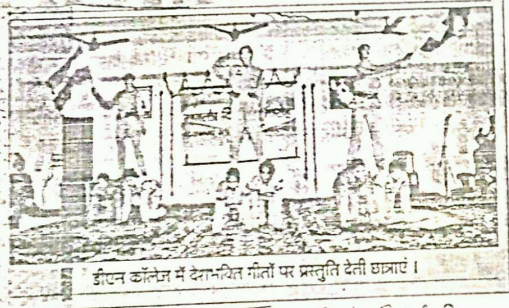 डीएन कॉलेज में देशभक्ति गीतों पर प्रस्तुति देती छात्राएं।